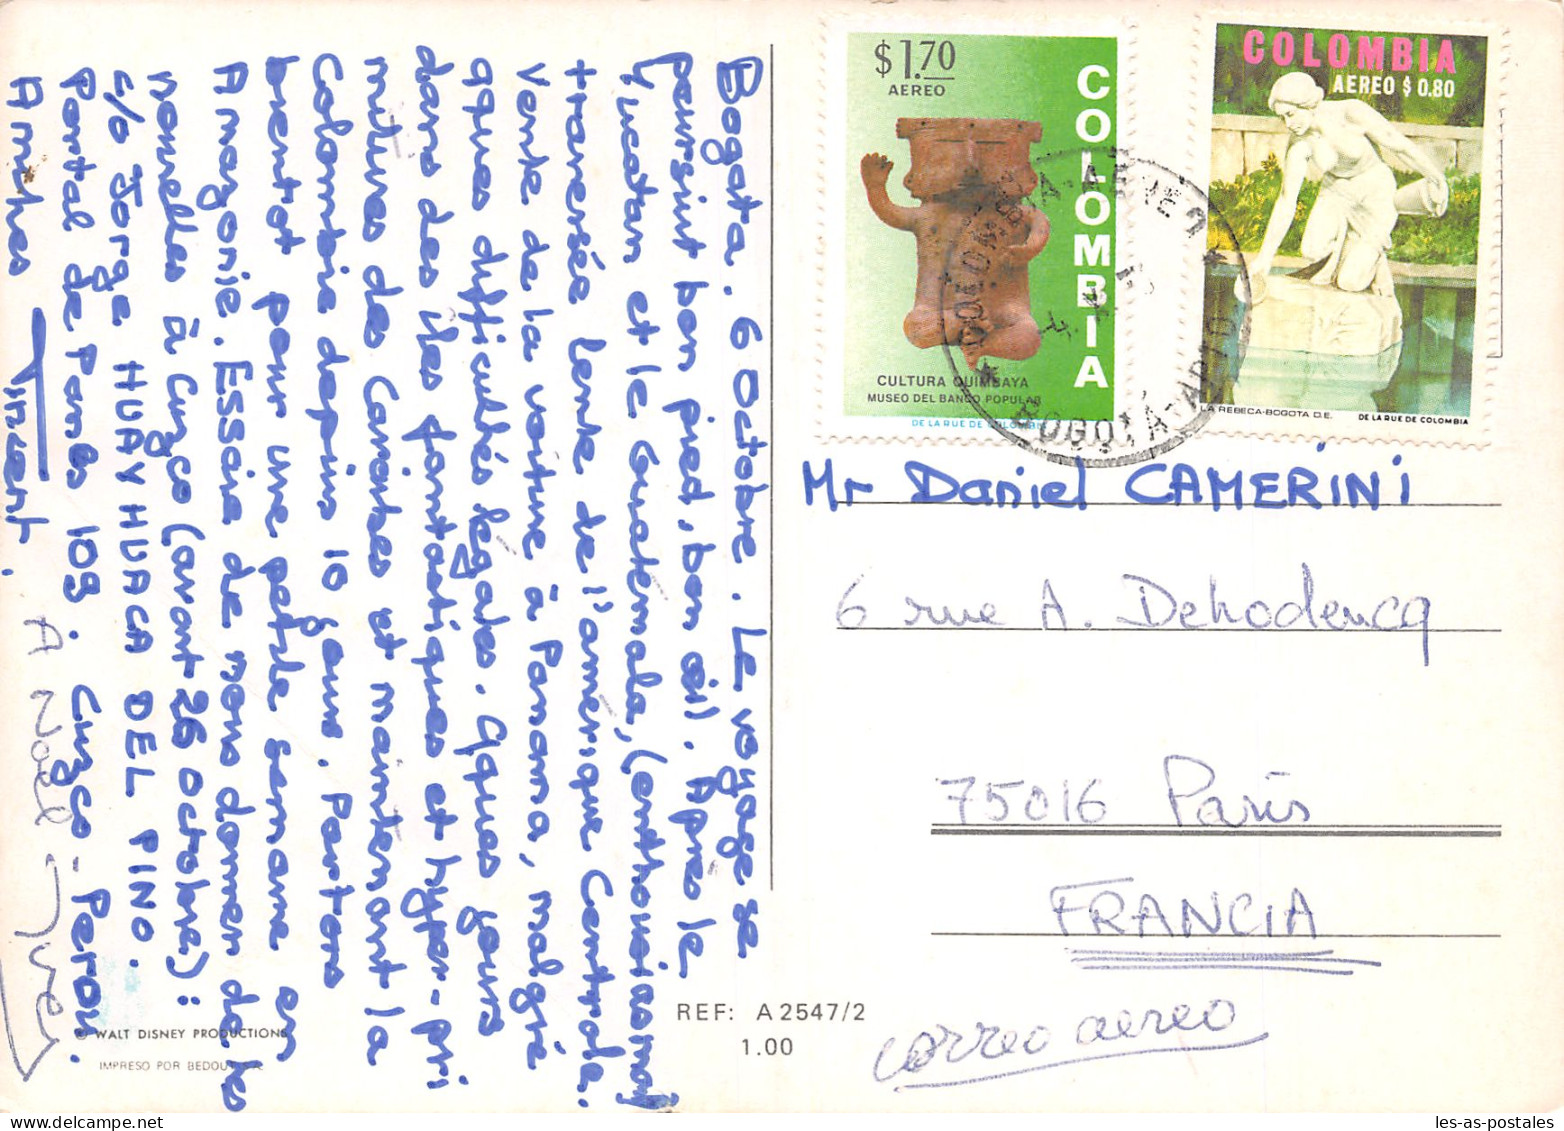 Bogota. 6 octobre. Le voyage se
poursuit bon pied, bon œil. Après le
Yucatan et le Guatémala, (enthousiasmant)
traversée lente de l'amérique Centrale.
Vente de la voiture à Panama, malgré
qques difficultés légales. Qques jours
dans des îles fantastiques et hyper-pri
mitives des Carraïbes et maintenant la
Colombie depuis 10 jours. Partons
bientot pour une petite semaine en
Amazonie. Essaie de nous donner de tes
nouvelles à Cuzco (avant 26 octobre):
c/o Jorge HUAYHUACA DEL PINO.
Portal de Panes 109. Cuzco - Perou.
Amitiés Vincent.
A Noël - Yves
© WALT DISNEY PRODUCTIONS
IMPRESO POR BEDOUT S.A.
REF: A 2547/2
1.00
$1.70
AEREO
COLOMBIA
CULTURA QUIMBAYA
MUSEO DEL BANCO POPULAR
DE LA RUE DE COLOMBIA
COLOMBIA
AEREO $ 0.80
LA REBECA-BOGOTA D.E.
DE LA RUE DE COLOMBIA
BOGOTÁ
Mr Daniel CAMERINI
6 rue A. Dehodencq
75016 Paris
FRANCIA
correo aereo
les-as-postales